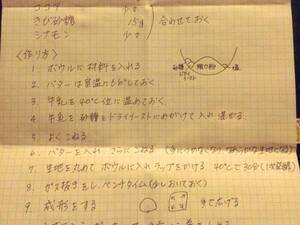 ココア 少々
きび砂糖 15g 合わせておく
シナモン 少々
〈作り方〉
1. ボウルに材料を入れる
2. バターは室温にもどしておく
3. 牛乳を40℃位に温めておく
4. 牛乳を砂糖とドライイーストにめがけて入れ混ぜる
砂糖 ドライイースト 強力粉 塩
5. よくこねる
6. バターを入れ さらにこねる
7. 生地を丸めて ボウルに入れラップをかける 40℃で30分(1次発酵)
8. ガス抜きをし、ベンチタイム(少しおいておく)
9. 成形をする 手で広げる